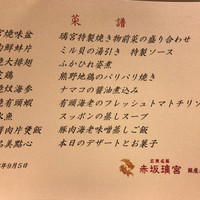 菜譜
焼味盆
璃宮特製焼き物前菜の盛り合わせ
鮮蚌片
ミル貝の湯引き 特製ソース
大排翅
ふかひれ姿煮
熊野地鶏のパリパリ焼き
海参
ナマコの醤油煮込み
有頭蝦
有頭海老のフレッシュトマトチリソ
水魚
スッポンの蒸しスープ
肉片煲飯
豚肉海老味噌蒸しご飯
名美點心
本日のデザートとお菓子
年9月5日
赤坂璃宮
銀座